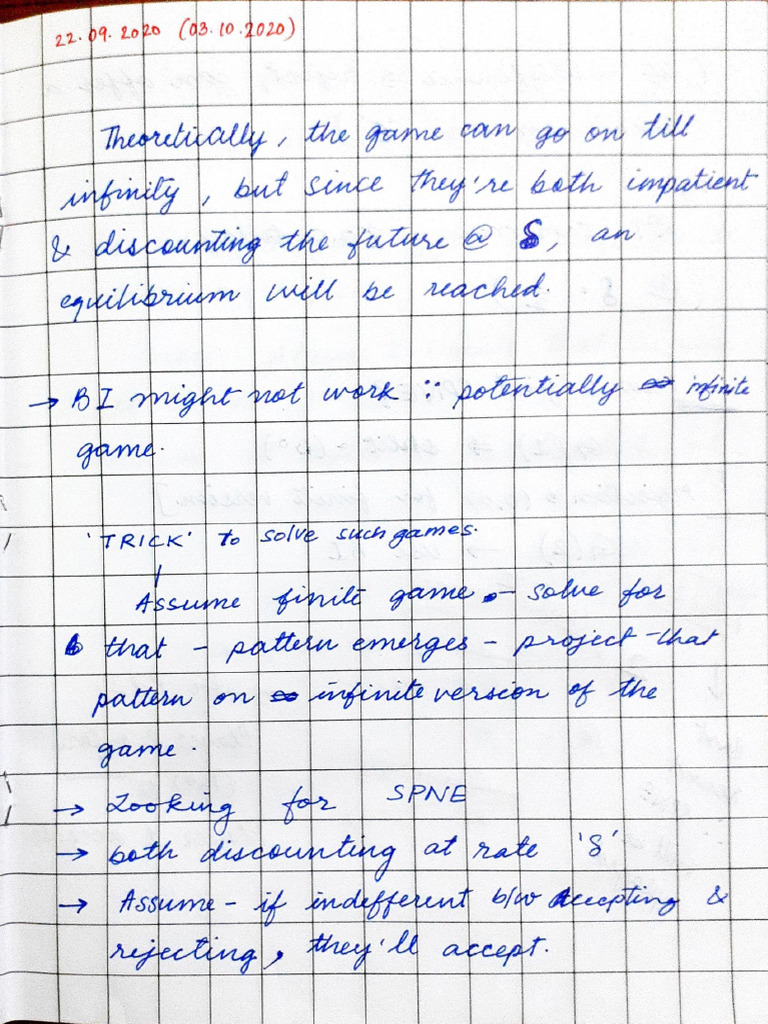 22.09.2020 (03.10.2020)
Theoretically, the game can go on till
infinity, but since they're both impatient
& discounting the future @ δ, an
equilibrium will be reached.
→ BI might not work ∵ potentially infinite
game.
'TRICK' to solve such games.
Assume finite game - solve for
that - pattern emerges - project that
pattern on infinite version of the
game.
→ Looking for SPNE
→ both discounting at rate 'δ'
→ Assume - if indefferent b/w accepting &
rejecting, they'll accept.